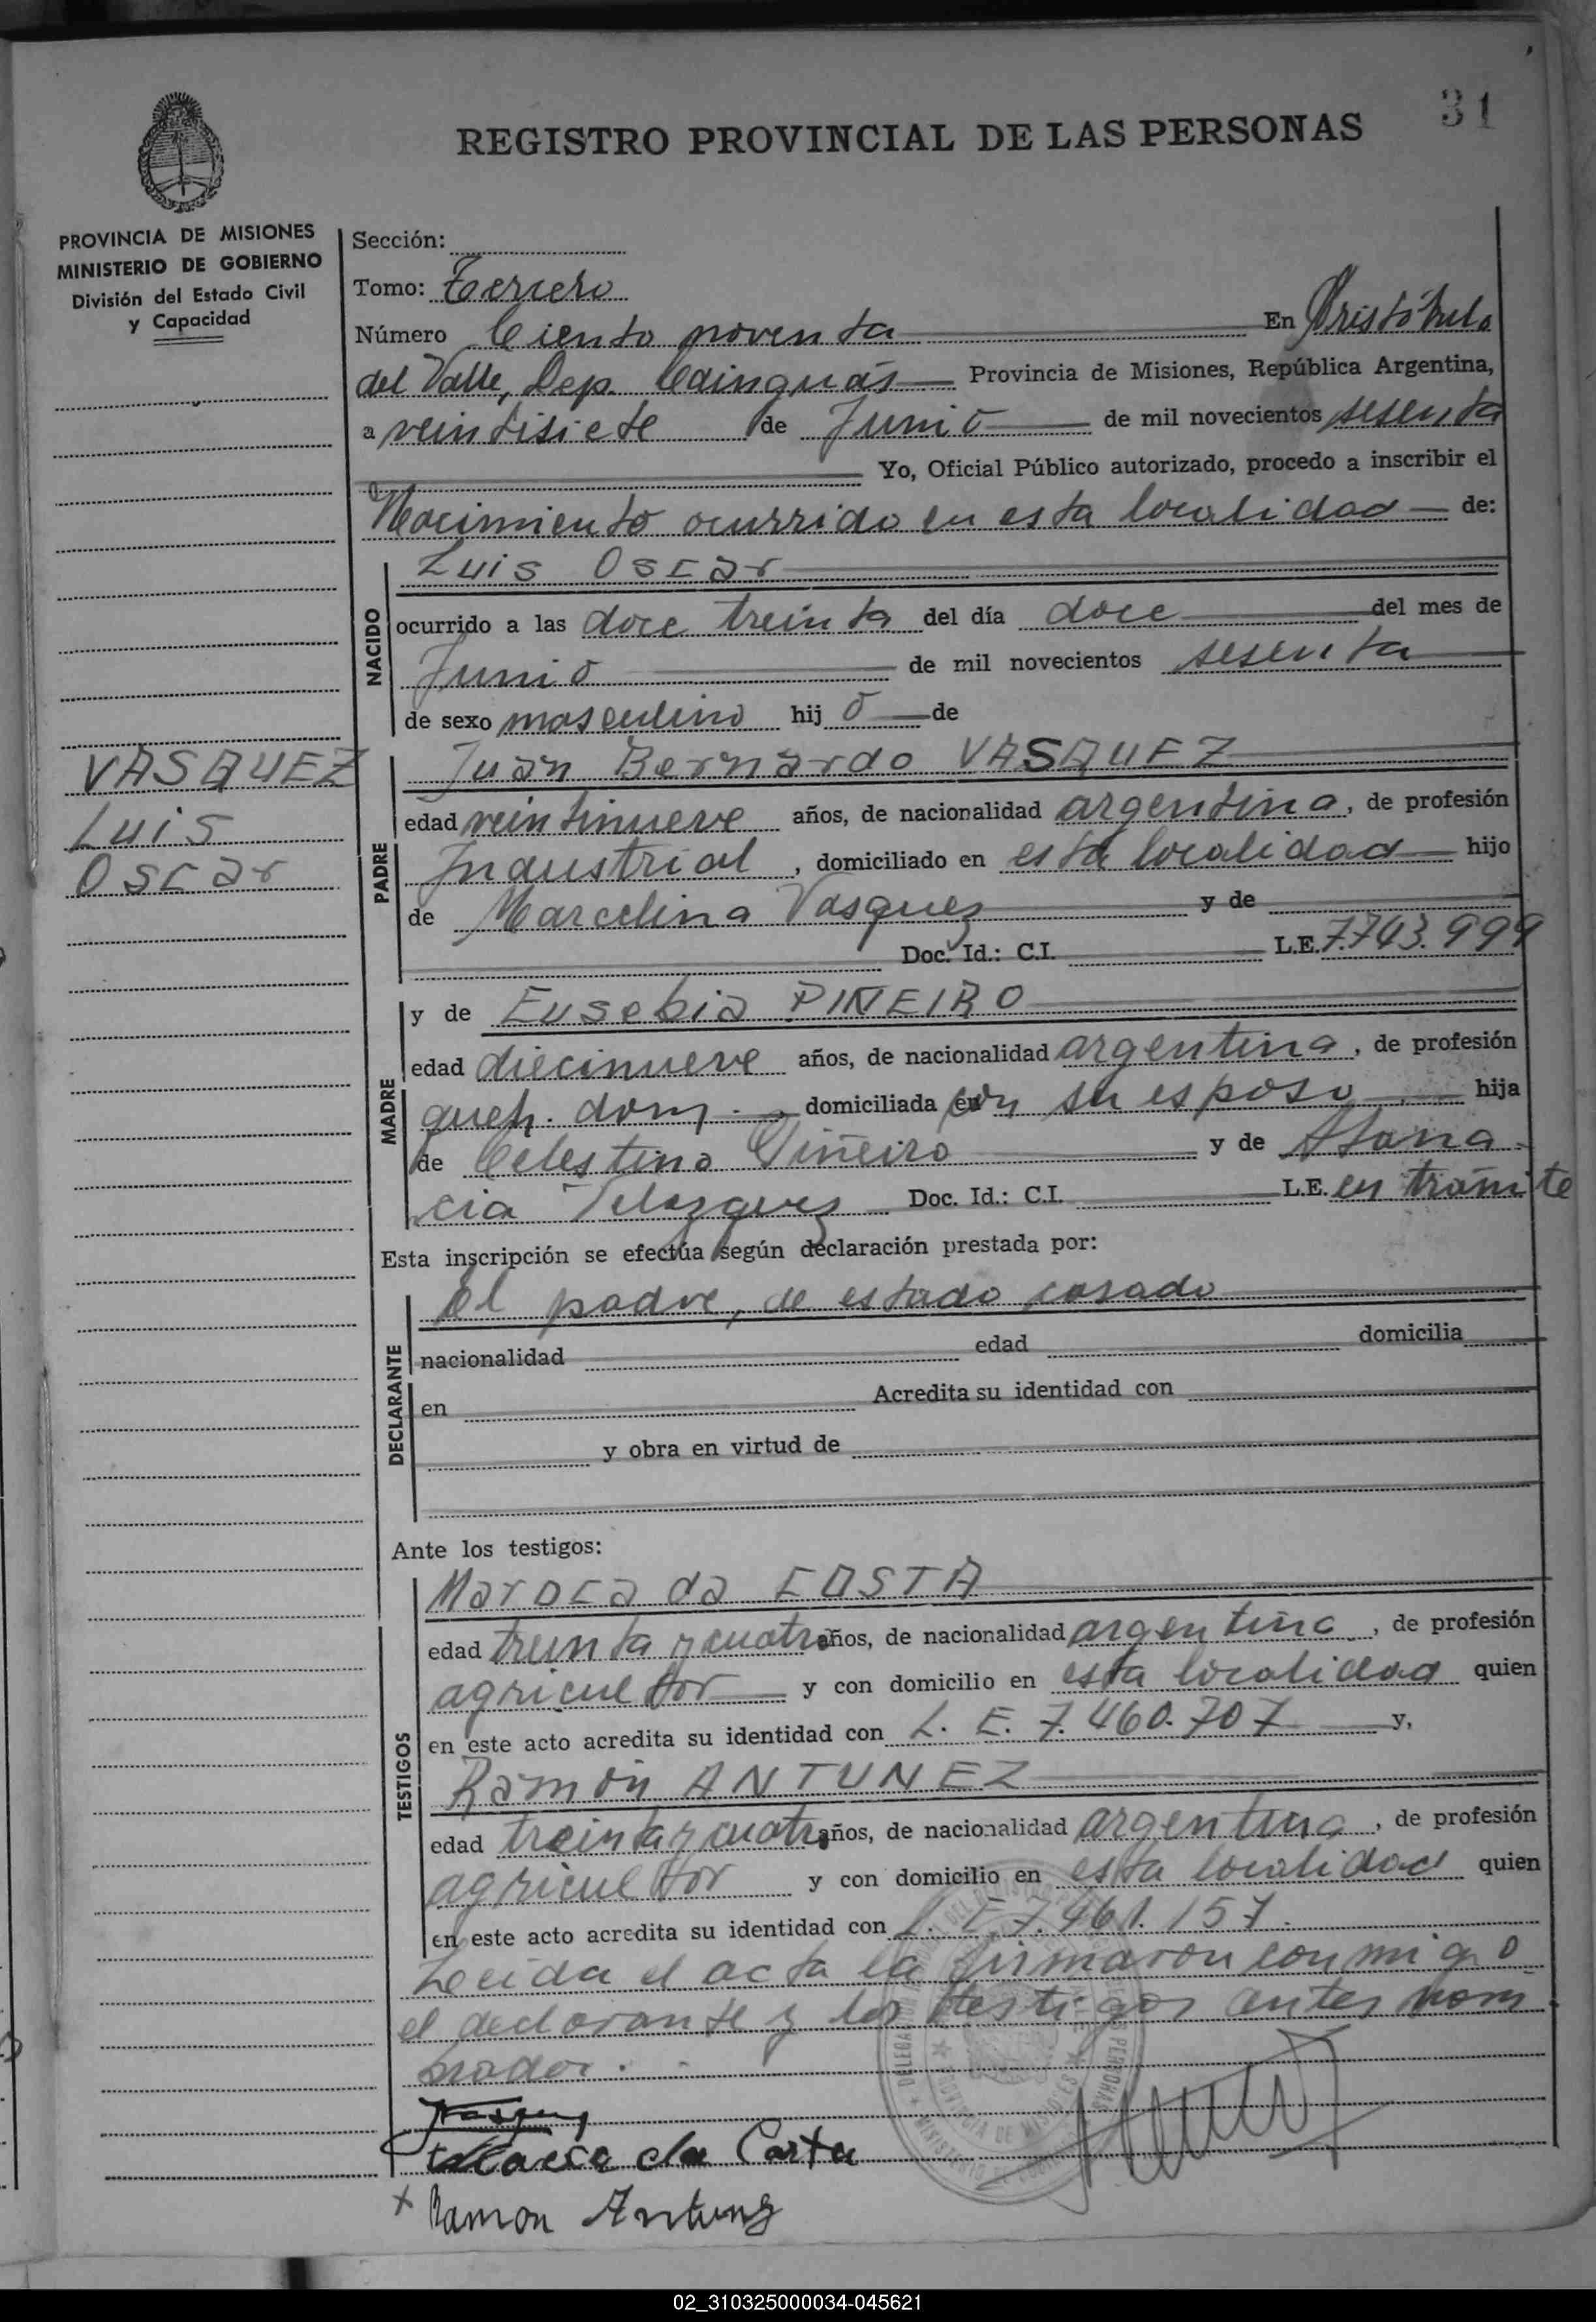 31
REGISTRO PROVINCIAL DE LAS PERSONAS
PROVINCIA DE MISIONES
MINISTERIO DE GOBIERNO
División del Estado Civil
y Capacidad
VASQUEZ
Luis
Oscar
Sección:
Tomo: Tercero
Número Ciento noventa En Aristóbulo
del Valle, Dep. Cainguás Provincia de Misiones, República Argentina,
a veintisiete de Junio de mil novecientos sesenta
Yo, Oficial Público autorizado, procedo a inscribir el
Nacimiento ocurrido en esta localidad de:
NACIDO
Luis Oscar
ocurrido a las doce treinta del día doce del mes de
Junio de mil novecientos sesenta
de sexo masculino hij o de
PADRE
Juan Bernardo VASQUEZ
edad veintinueve años, de nacionalidad argentina, de profesión
Industrial, domiciliado en esta localidad hijo
de Marcelina Vasquez y de
Doc. Id.: C.I. L.E. 7.743.999
MADRE
y de Eusebia PIÑEIRO
edad diecinueve años, de nacionalidad argentina, de profesión
queh. dom. domiciliada con su esposo hija
de Celestino Piñeiro y de Atana
cia Velazquez Doc. Id.: C.I. L.E. en trámite
Esta inscripción se efectúa según declaración prestada por:
DECLARANTE
el padre, de estado casado
nacionalidad edad domicilia
en Acredita su identidad con
y obra en virtud de
Ante los testigos:
TESTIGOS
da COSTA
edad treinta y cuatro años, de nacionalidad argentina, de profesión
agricultor y con domicilio en esta localidad quien
en este acto acredita su identidad con L. E. 7.460.707 y,
Ramón ANTUNEZ
edad treinta y cuatro años, de nacionalidad argentina, de profesión
agricultor y con domicilio en esta localidad quien
en este acto acredita su identidad con L. E. 7.461.157.
Leida el acta la firmaron conmigo
el declarante y los testigos antes nom
nador.
da Costa
x Ramon Antunez
02_310325000034-045621